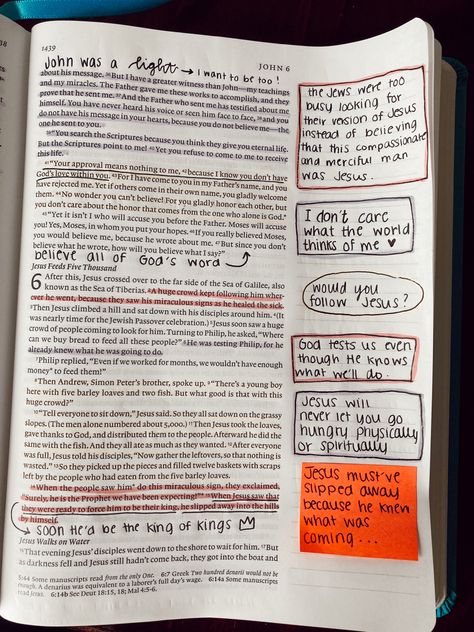 1439
JOHN 6
John was a light → I want to be too!
about his message. 36But I have a greater witness than John—my teachings
and my miracles. The Father gave me these works to accomplish, and they
prove that he sent me. 37And the Father who sent me has testified about me
himself. You have never heard his voice or seen him face to face, 38and you
do not have his message in your hearts, because you do not believe me—the
one he sent to you.
39"You search the Scriptures because you think they give you eternal life.
But the Scriptures point to me! 40Yet you refuse to come to me to receive
this life.
41"Your approval means nothing to me, 42because I know you don't have
God's love within you. 43For I have come to you in my Father's name, and you
have rejected me. Yet if others come in their own name, you gladly welcome
them. 44No wonder you can't believe! For you gladly honor each other, but
you don't care about the honor that comes from the one who alone is God."
45"Yet it isn't I who will accuse you before the Father. Moses will accuse
you! Yes, Moses, in whom you put your hopes. 46If you really believed Moses,
you would believe me, because he wrote about me. 47But since you don't
believe what he wrote, how will you believe what I say?"
believe all of God's word
Jesus Feeds Five Thousand
6 After this, Jesus crossed over to the far side of the Sea of Galilee, also
known as the Sea of Tiberias. 2A huge crowd kept following him wher-
ever he went, because they saw his miraculous signs as he healed the sick.
3Then Jesus climbed a hill and sat down with his disciples around him. 4(It
was nearly time for the Jewish Passover celebration.) 5Jesus soon saw a huge
crowd of people coming to look for him. Turning to Philip, he asked, "Where
can we buy bread to feed all these people?" 6He was testing Philip, for he
already knew what he was going to do.
7Philip replied, "Even if we worked for months, we wouldn't have enough
money* to feed them!"
8Then Andrew, Simon Peter's brother, spoke up. 9"There's a young boy
here with five barley loaves and two fish. But what good is that with this
huge crowd?"
10"Tell everyone to sit down," Jesus said. So they all sat down on the grassy
slopes. (The men alone numbered about 5,000.) 11Then Jesus took the loaves,
gave thanks to God, and distributed them to the people. Afterward he did the
same with the fish. And they all ate as much as they wanted. 12After everyone
was full, Jesus told his disciples, "Now gather the leftovers, so that nothing is
wasted." 13So they picked up the pieces and filled twelve baskets with scraps
left by the people who had eaten from the five barley loaves.
14When the people saw him* do this miraculous sign, they exclaimed,
"Surely, he is the Prophet we have been expecting!"* 15When Jesus saw that
they were ready to force him to be their king, he slipped away into the hills
by himself.
→ soon He'd be the king of kings
Jesus Walks on Water
16That evening Jesus' disciples went down to the shore to wait for him. 17But
as darkness fell and Jesus still hadn't come back, they got into the boat and
5:44 Some manuscripts read from the only One. 6:7 Greek Two hundred denarii would not be
enough. A denarius was equivalent to a laborer's full day's wage. 6:14a Some manuscripts
read Jesus. 6:14b See Deut 18:15, 18; Mal 4:5-6.
the Jews were too
busy looking for
their version of Jesus
instead of believing
that this compassionate
and merciful man
was Jesus.
I don't care
what the world
thinks of me ♥
would you
follow Jesus?
God tests us even
though He knows
what we'll do.
Jesus will
never let you go
hungry physically
or spiritually
Jesus must've
slipped away
because he knew
what was
coming...